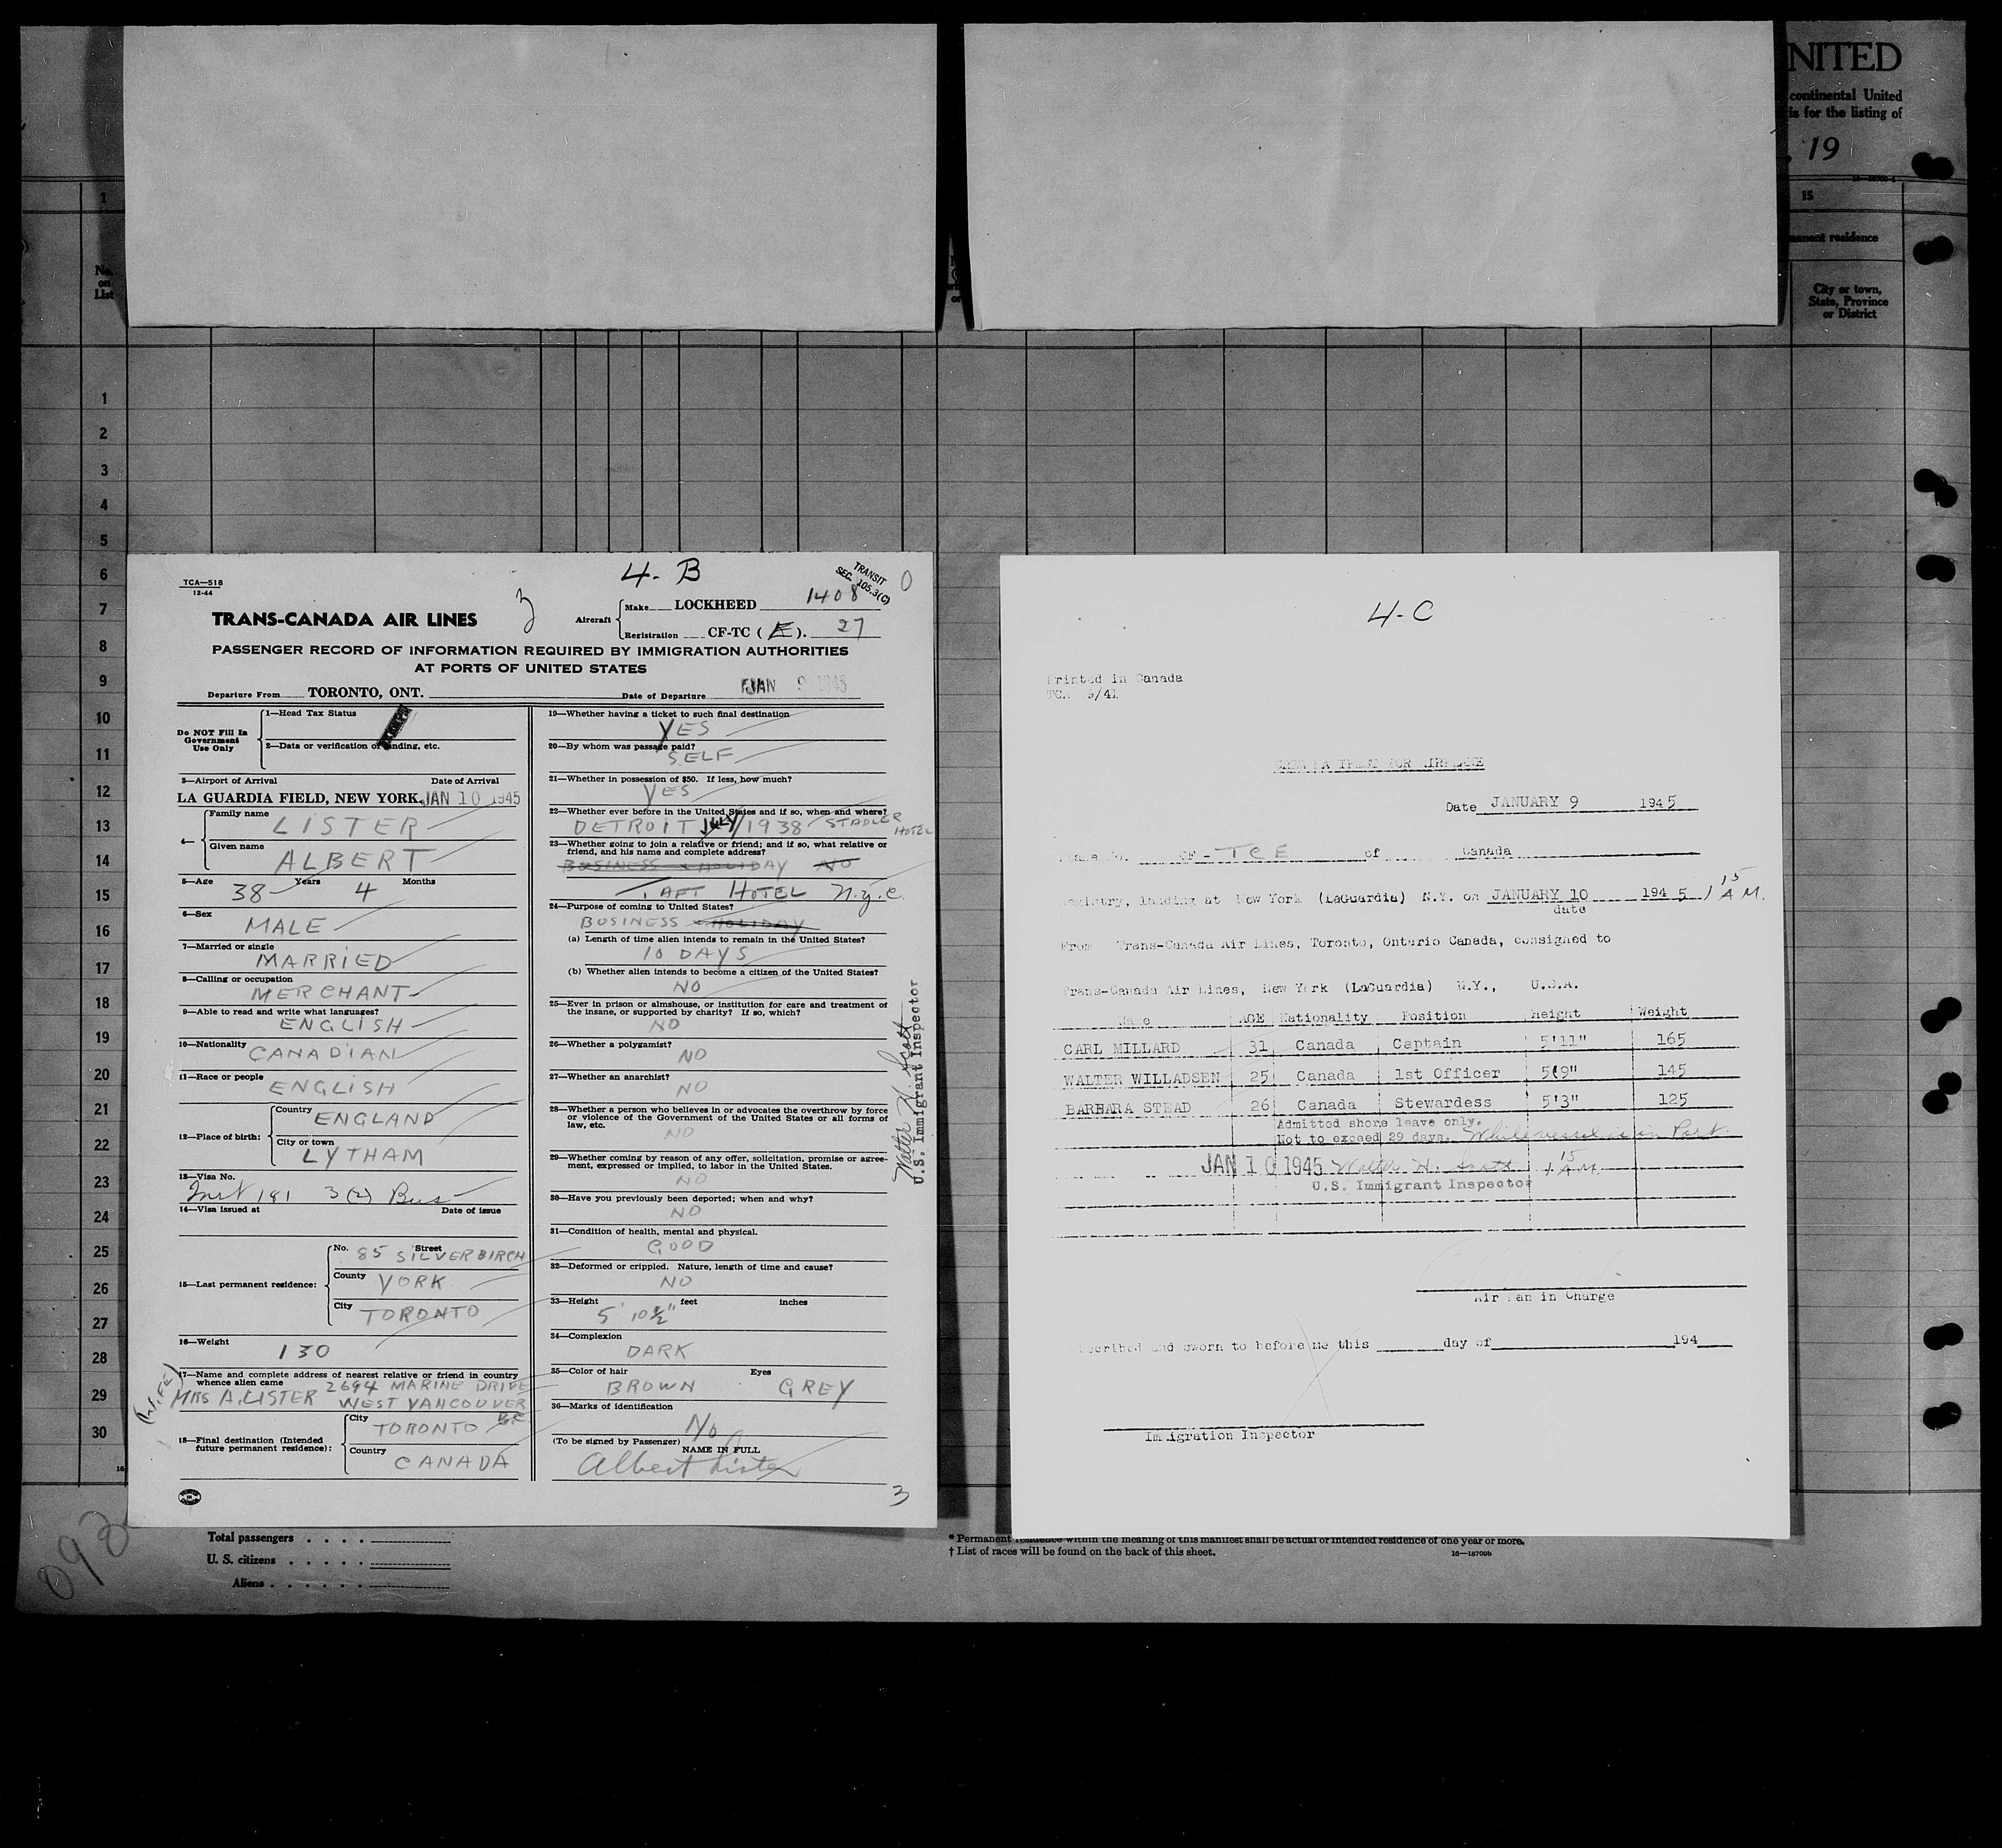 NITED
continental United
is for the listing of
, 19
1
15
manent residence
No.
on
List
City or town,
State, Province
or District
1
2
3
4
5
6
7
8
9
10
11
12
13
14
15
16
17
18
19
20
21
22
23
24
25
26
27
28
29
30
TCA—518
12-44
4-B
TRANSIT
SEC. 105.3(C)
0
3
TRANS-CANADA AIR LINES
Aircraft
Make LOCKHEED 1408
Registration CF-TC ( E ). 27
PASSENGER RECORD OF INFORMATION REQUIRED BY IMMIGRATION AUTHORITIES
AT PORTS OF UNITED STATES
Departure From TORONTO, ONT. Date of Departure JAN 9 1945
Do NOT Fill In
Government
Use Only
1—Head Tax Status
2—Data or verification of landing, etc.
3—Airport of Arrival Date of Arrival
LA GUARDIA FIELD, NEW YORK. JAN 10 1945
4—
Family name
LISTER
Given name
ALBERT
5—Age 38 Years 4 Months
6—Sex
MALE
7—Married or single
MARRIED
8—Calling or occupation
MERCHANT
9—Able to read and write what languages?
ENGLISH
10—Nationality
CANADIAN
11—Race or people
ENGLISH
12—Place of birth:
Country
ENGLAND
City or town
LYTHAM
13—Visa No.
Inst 181 3(2) Bus
14—Visa issued at Date of issue
15—Last permanent residence:
No. 85 Street SILVERBIRCH
County YORK
City TORONTO
16—Weight
130
17—Name and complete address of nearest relative or friend in country
whence alien came 2694 MARINE DRIVE
(WIFE) MRS A. LISTER WEST VANCOUVER
BC
18—Final destination (Intended
future permanent residence):
City
TORONTO
Country
CANADA
19—Whether having a ticket to such final destination
YES
20—By whom was passage paid?
SELF
21—Whether in possession of $50. If less, how much?
YES
22—Whether ever before in the United States and if so, when and where?
DETROIT JULY/1938 STADLER
HOTEL
23—Whether going to join a relative or friend; and if so, what relative or
friend, and his name and complete address?
BUSINESS & HOLIDAY NO
TAFT HOTEL N.Y.C.
24—Purpose of coming to United States?
BUSINESS & HOLIDAY
(a) Length of time alien intends to remain in the United States?
10 DAYS
(b) Whether alien intends to become a citizen of the United States?
NO
25—Ever in prison or almshouse, or institution for care and treatment of
the insane, or supported by charity? If so, which?
NO
26—Whether a polygamist?
NO
27—Whether an anarchist?
NO
28—Whether a person who believes in or advocates the overthrow by force
or violence of the Government of the United States or all forms of
law, etc.
NO
29—Whether coming by reason of any offer, solicitation, promise or agree-
ment, expressed or implied, to labor in the United States.
NO
30—Have you previously been deported; when and why?
NO
31—Condition of health, mental and physical.
GOOD
32—Deformed or crippled. Nature, length of time and cause?
NO
33—Height feet inches
5' 10½"
34—Complexion
DARK
35—Color of hair Eyes
BROWN GREY
36—Marks of identification
No
(To be signed by Passenger) NAME IN FULL
Albert Lister
3
Walter H. Scott
U.S. Immigrant Inspector
4-C
Printed in Canada
TCA 9/41
CREW MANIFEST FOR AIRPLANE
Date JANUARY 9 1945
CF - TCE of Canada
Registry, landing at New York (LaGuardia) N.Y. on JANUARY 10 1945 1 15 A M.
date
From Trans-Canada Air Lines, Toronto, Ontario Canada, consigned to
Trans-Canada Air Lines, New York (LaGuardia) N.Y., U.S.A.
Name AGE Nationality Position Height Weight
CARL MILLARD 31 Canada Captain 5'11" 165
WALTER WILLADSEN 25 Canada 1st Officer 5'9" 145
BARBARA STEAD 26 Canada Stewardess 5'3" 125
Admitted shore leave only.
Not to exceed 29 days. While vessel is in Port.
JAN 10 1945 Walter H. Scott 1 15 A M.
U.S. Immigrant Inspector
Air Man in Charge
scribed and sworn to before me this day of 194
Immigration Inspector
Total passengers
U. S. citizens
Aliens
* Permanent residence within the meaning of this manifest shall be actual or intended residence of one year or more.
† List of races will be found on the back of this sheet.
16—18709b